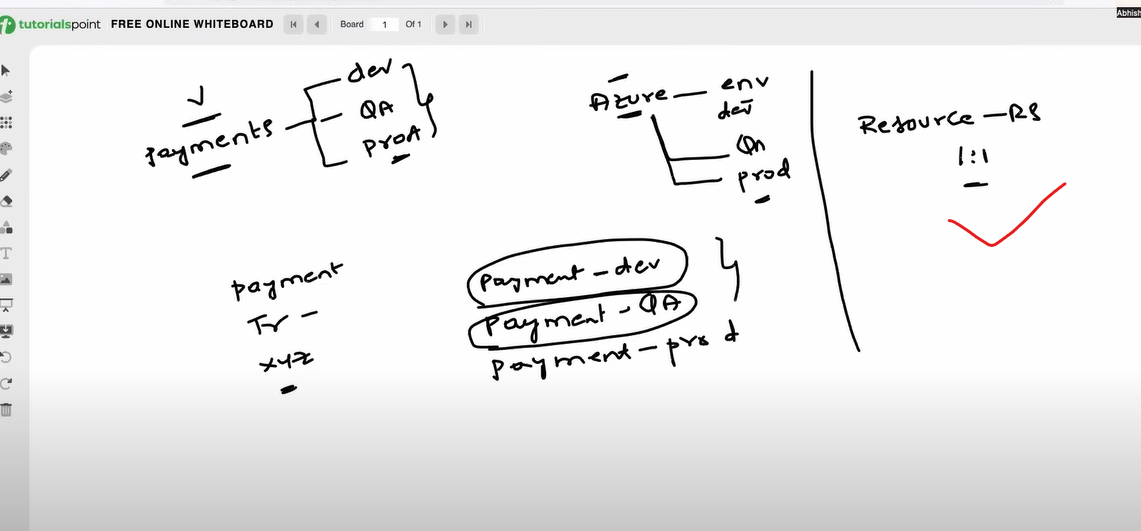 Abhish
tutorialspoint FREE ONLINE WHITEBOARD Board 1 Of 1
payments
dev
QA
prod
Azure — env
dev
QA
prod
Resource — RS
1:1
payment
Tr —
xyz
payment - dev
payment - QA
payment - prod